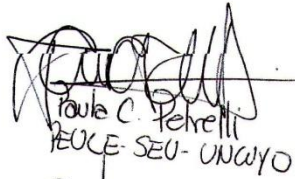 Paula C. Petrelli
PEUCE-SEU-UNCUYO